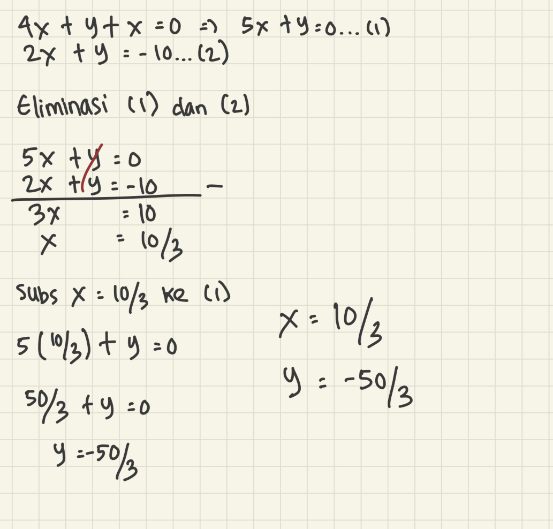 4x + y + x = 0 => 5x + y = 0 ... (1)
2x + y = -10 ... (2)
Eliminasi (1) dan (2)
5x + y = 0
2x + y = -10 -
3x = 10
x = 10/3
Subs x = 10/3 ke (1)
5(10/3) + y = 0
50/3 + y = 0
y = -50/3
x = 10/3
y = -50/3